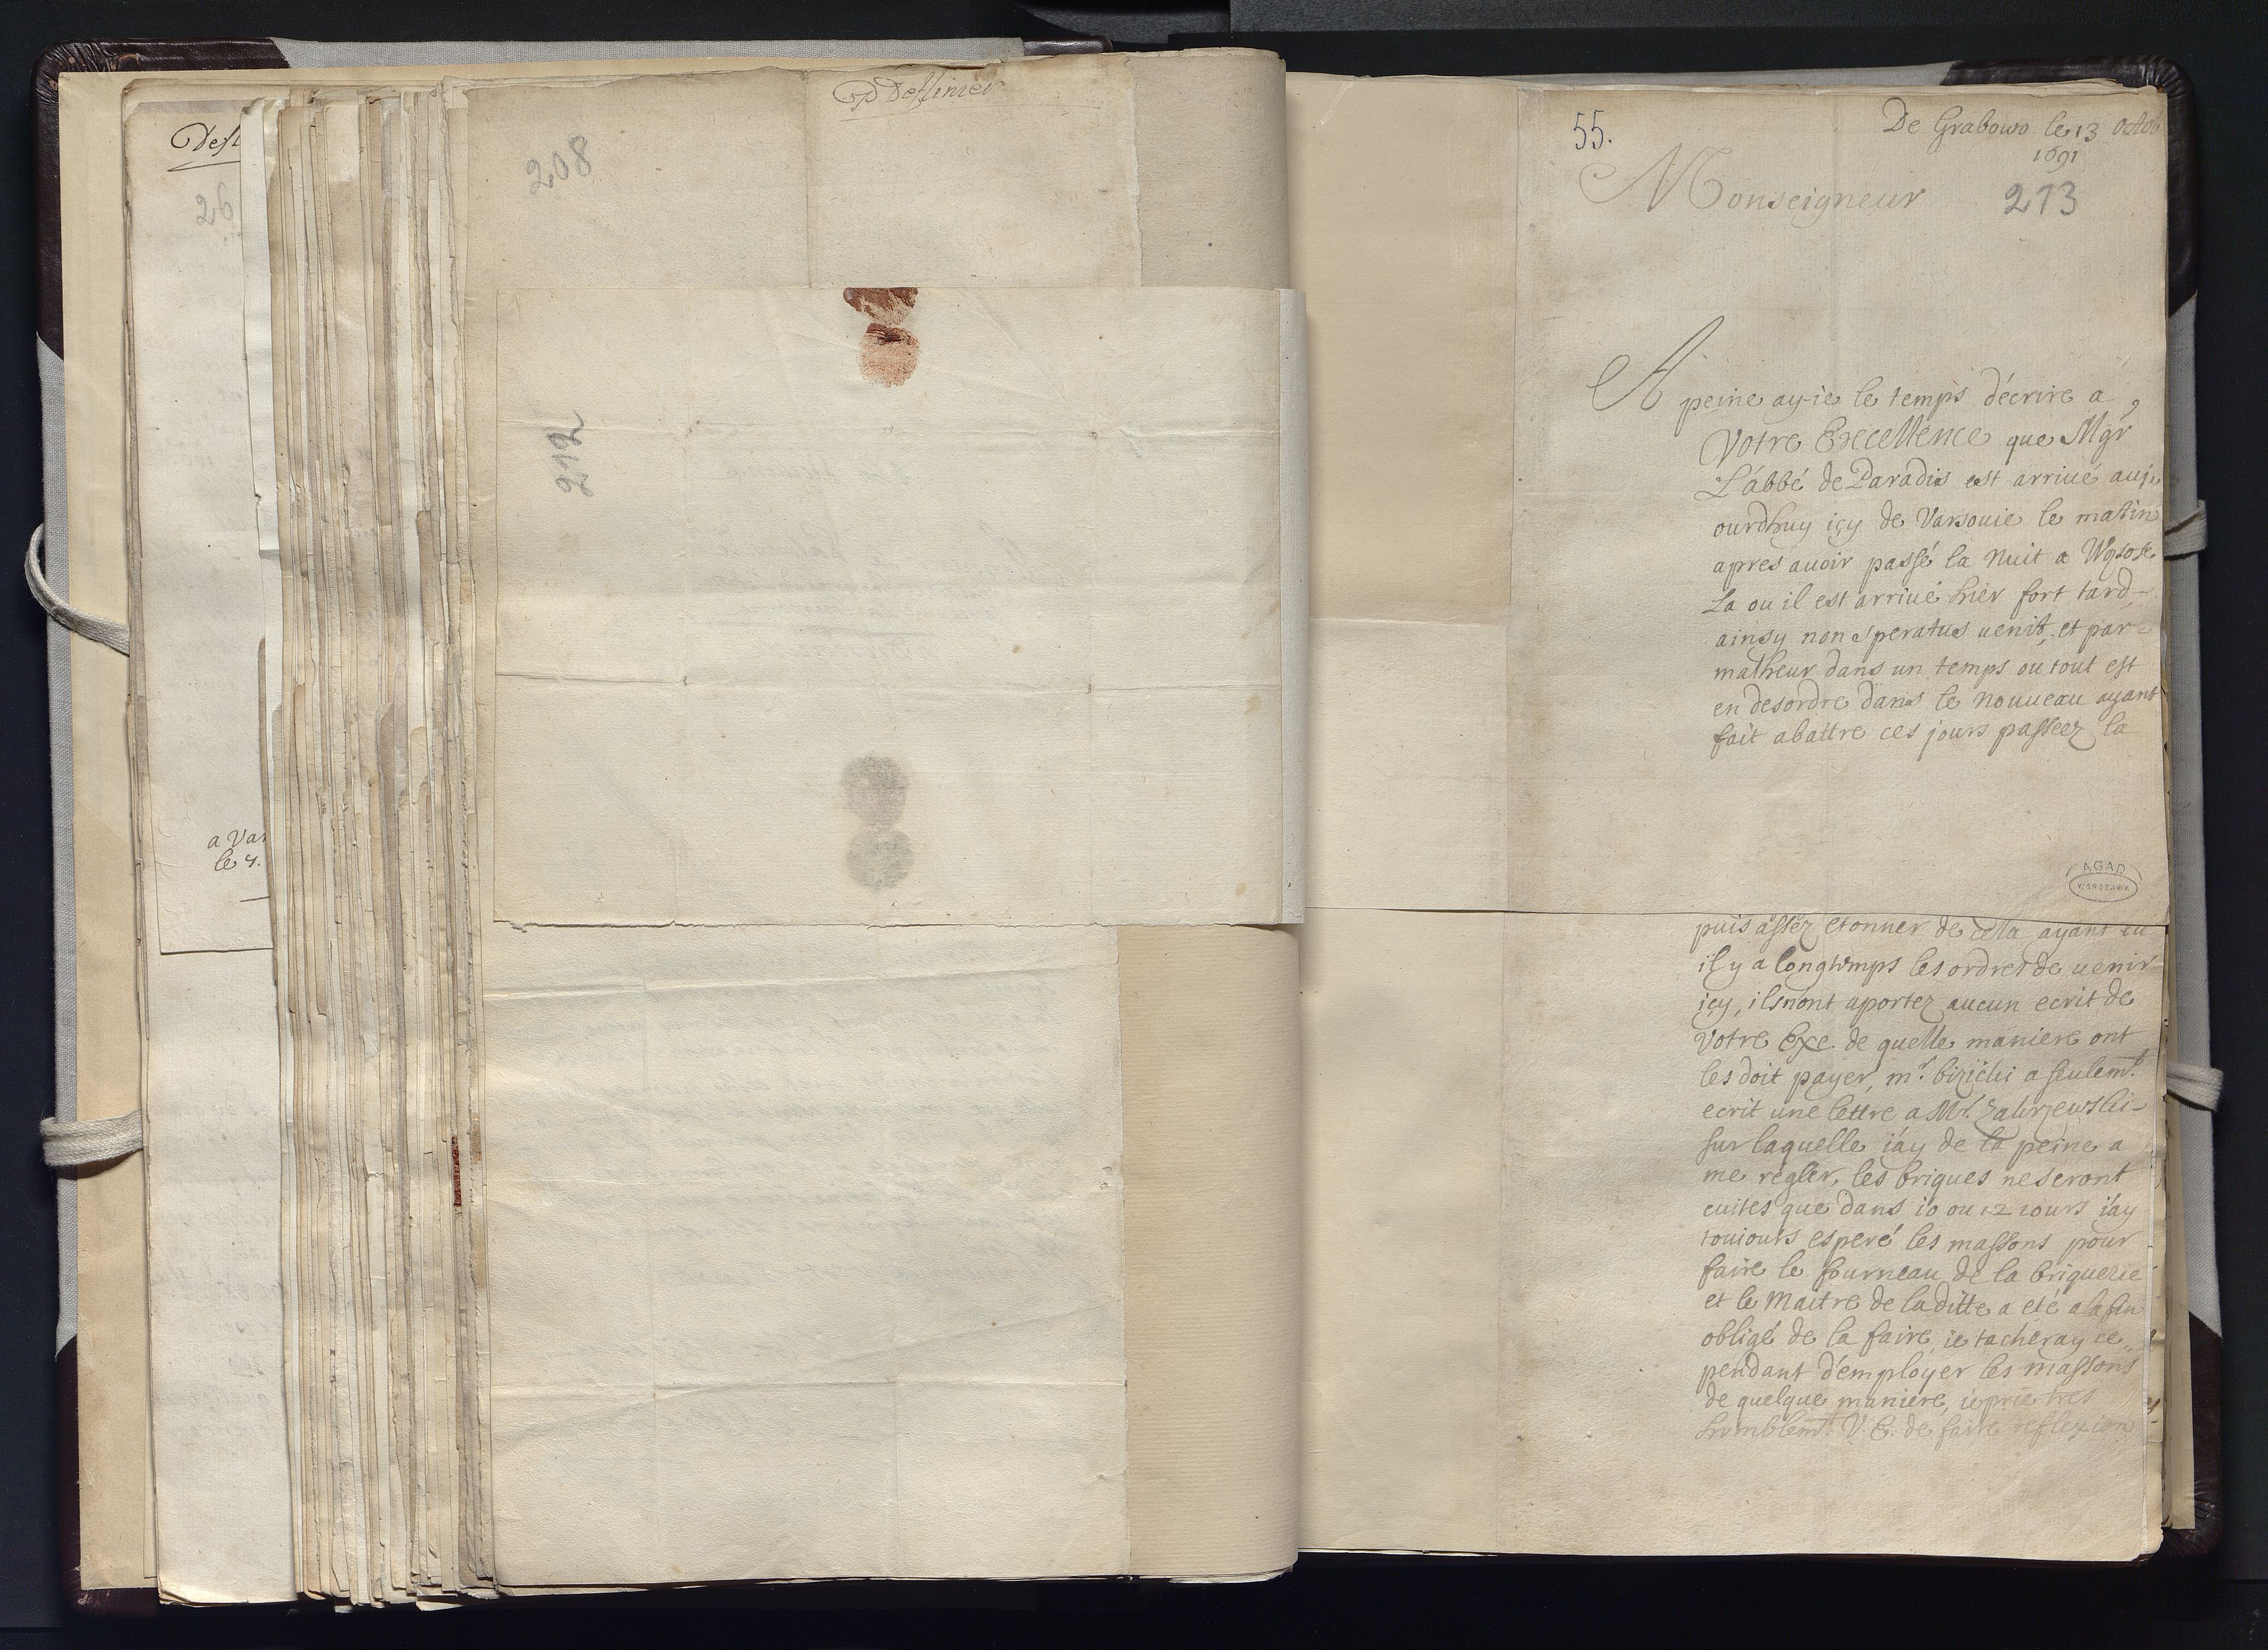 Dest
26
a Var
le 4.
P Destinier
208
212
55.
De Grabowo le 13 Octob
1691
Monseigneur
213
A peine ay-ie le temps d'écrire a
Votre Execellence que Mgr
L'abbé de Paradis est arriué auj„
ourdhuy içy de Varsouie le matin
apres auoir passé la nuit a
La ou il est arriué hier fort tard-
ainsy non speratus uenit, et par-
malheur dans un temps ou tout est
en desordre dans le nouueau ayant
fait abattre ces jours passeez la
AGAD
WARSZAWA
puis assez etonner de cela ayant eu
il y a longtemps les ordres de uenir
içy, ils nont aportez aucun ecrit de
Votre Exe. de quelle maniere ont
les doit payer, mr. bizichi a seulemt.
ecrit une lettre a Mr. Zakrzewski-
sur laquelle i'ay de la peine a
me regler, les briques ne seront
cuites que dans 10 ou 12 iours i'ay
touiours esperé les massons pour
faire le fourneau de la briquerie
et le Maitre de la ditte a eté a la fin
obligé de la faire, ie tacheray ce„
pendant d'employer les massons
de quelque maniere, ie prie tres
humblemt. V. E. de faire reflexion